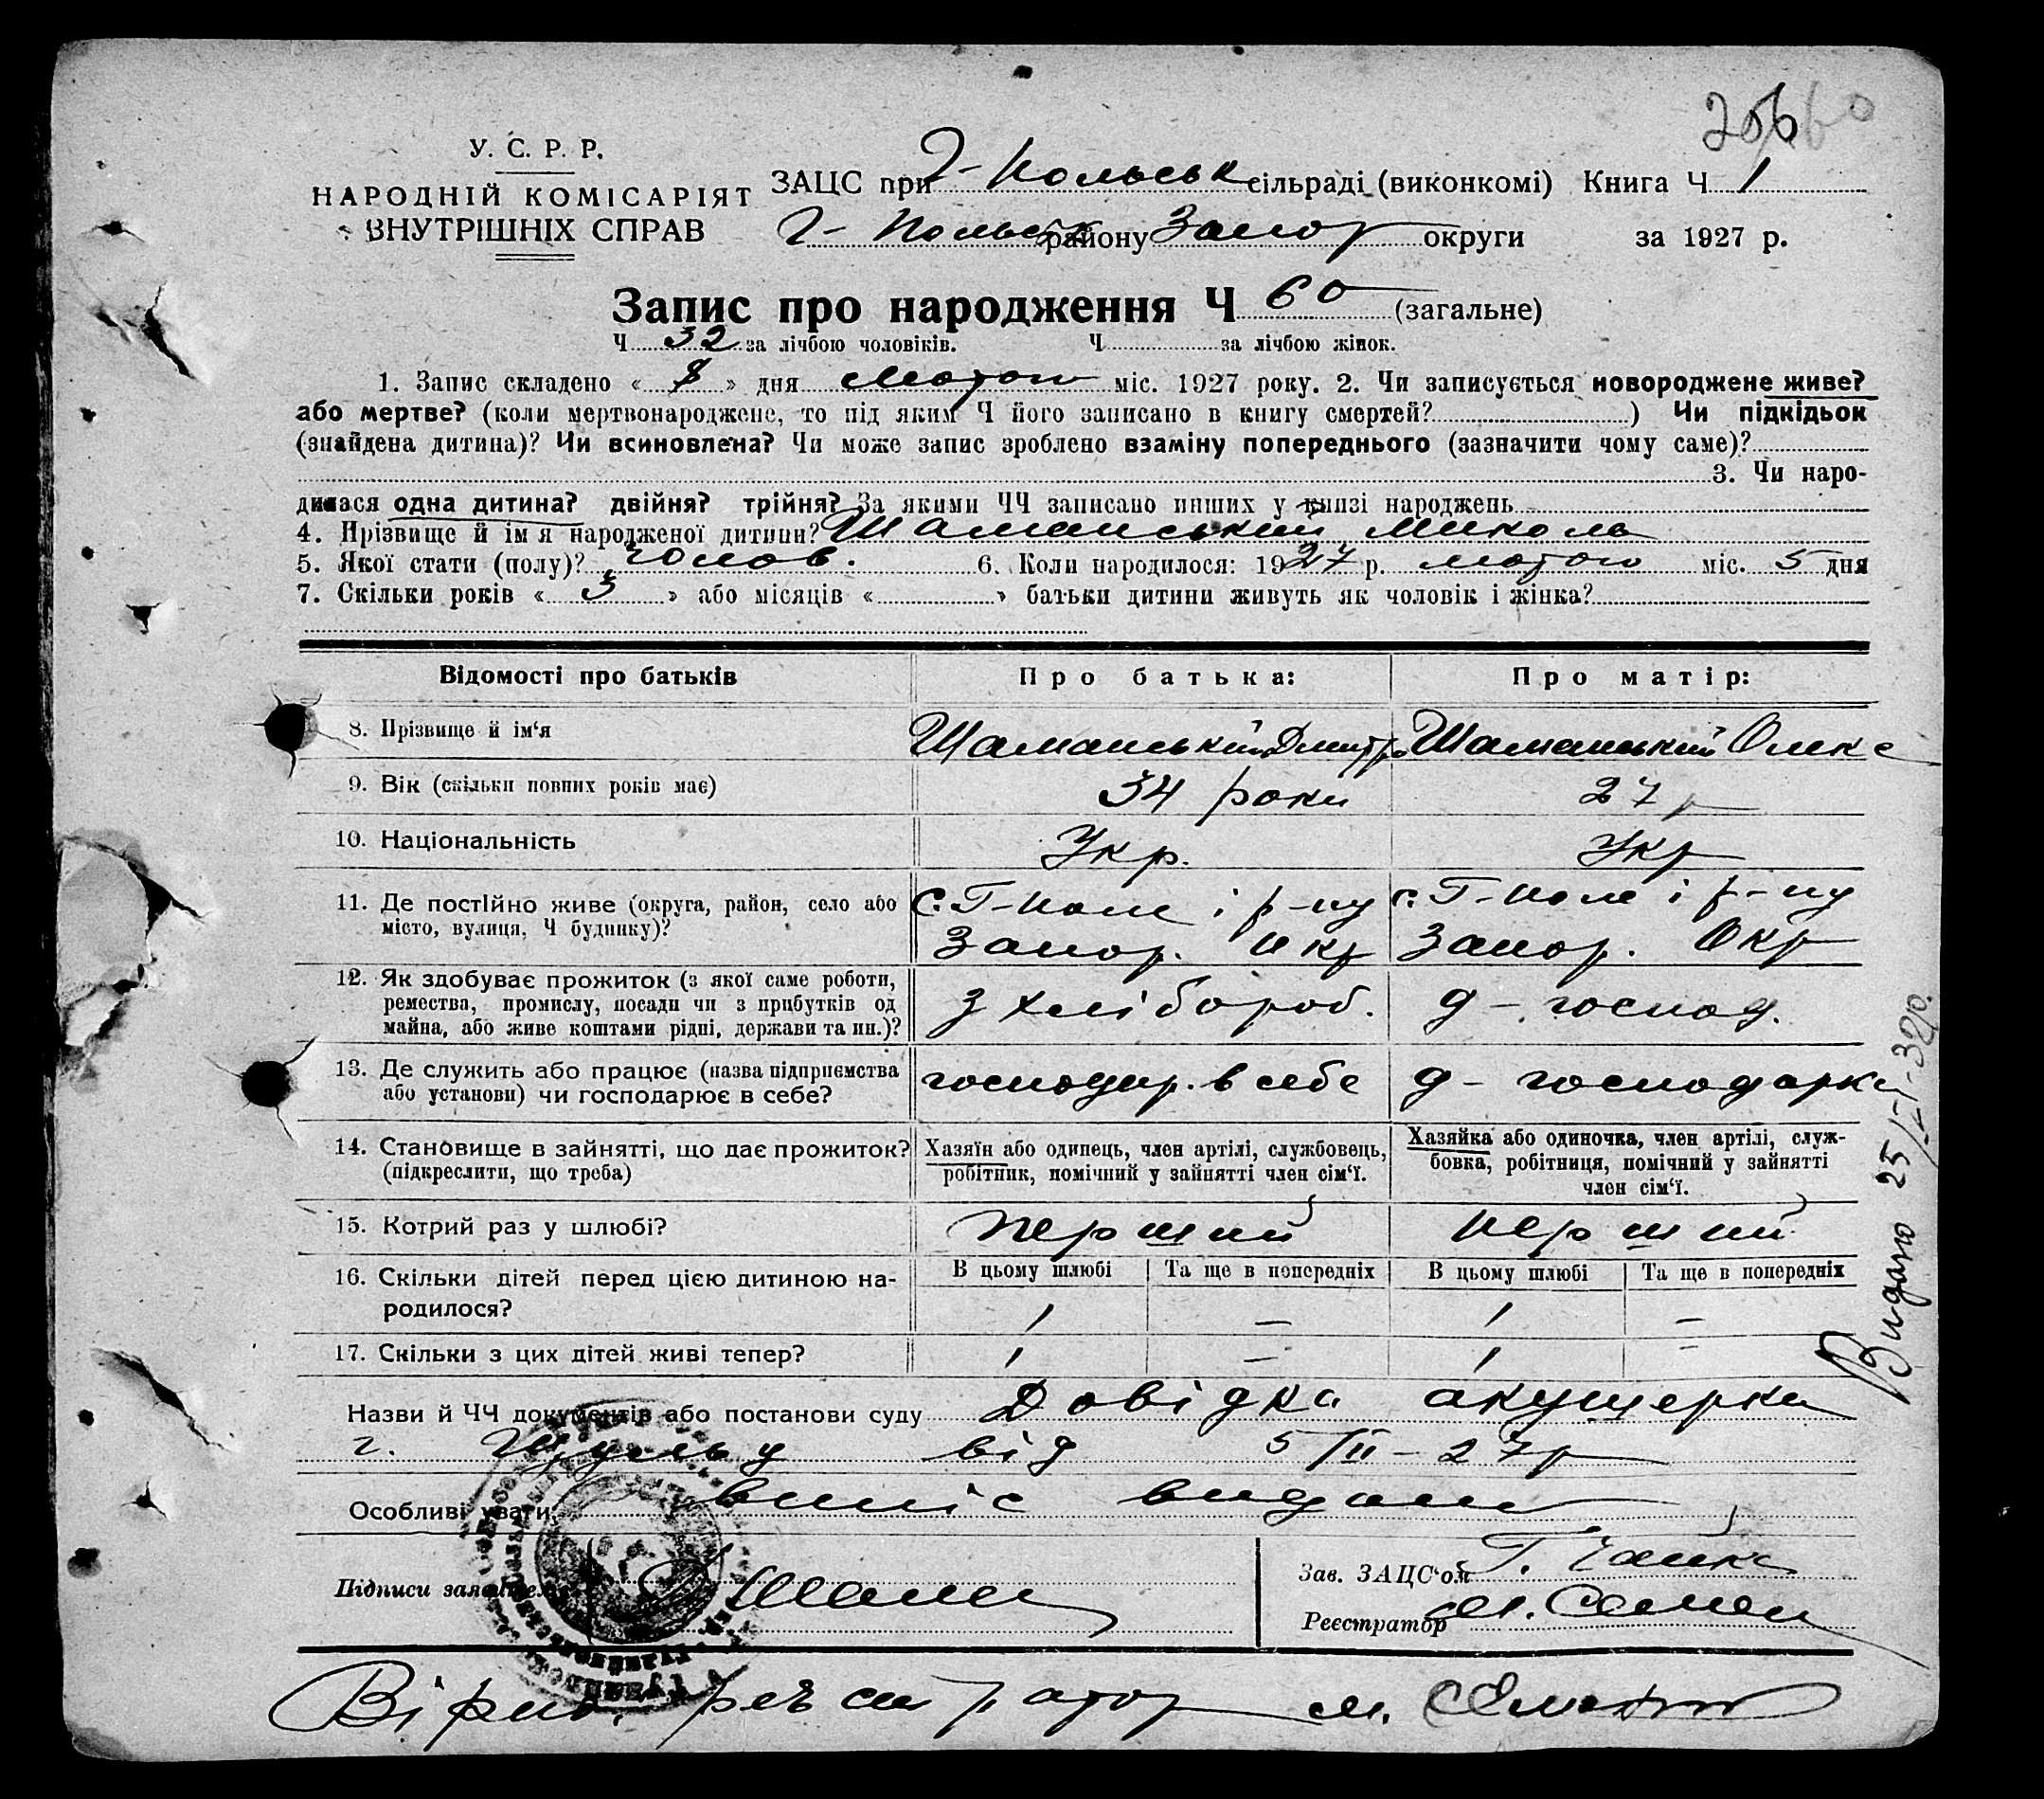 У. С. Р. Р.
НАРОДНІЙ КОМІСАРІЯТ
ВНУТРІШНІХ СПРАВ
ЗАЦС при Г-Польськ сільраді (виконкомі) Книга Ч 1
Г-Польск району Запор округи за 1927 р.
Запис про народження Ч 60 (загальне)
Ч 32 за лічбою чоловіків. Ч за лічбою жінок.
1. Запис складено « 8 » дня лютого міс. 1927 року. 2. Чи записується новороджене живе?
або мертве? (коли мертвонароджене, то під яким Ч його записано в книгу смертей? ) Чи підкідьок
(знайдена дитина)? Чи всиновлена? Чи може запис зроблено взаміну попереднього (зазначити чому саме)?
3. Чи наро-
дилася одна дитина? двійня? трійня? За якими ЧЧ записано инших у книзі народжень
4. Прізвище й ім'я народженої дитини? Шаманський Миколь
5. Якої стати (полу)? чолов. 6. Коли народилося: 1927 р. лютого міс. 5 дня
7. Скільки років « 3 » або місяців « » батьки дитини живуть як чоловік і жінка?
Відомості про батьків Про батька: Про матір:
8. Прізвище й ім'я Шаманський Дмитро Шаманський Олекс
9. Вік (скільки повних років має) 34 роки 27 р
10. Національність Укр. Укр
11. Де постійно живе (округа, район, село або місто, вулиця, Ч будинку)? с. Г-Поле і р-ну Запор. Окр с. Г-Поле і р-ну Запор. Окр
12. Як здобуває прожиток (з якої саме роботи, ремества, промислу, посади чи з прибутків од майна, або живе коштами рідні, держави та ин.)? з хлібороб. д-господ.
13. Де служить або працює (назва підприємства або установи) чи господарює в себе? господар. в себе д-господарка
14. Становище в зайнятті, що дає прожиток? (підкреслити, що треба) Хазяїн або одинець, член артілі, службовець, робітник, помічний у зайнятті член сім'ї. Хазяйка або одиночка, член артілі, служ-бовка, робітниця, помічний у зайнятті член сім'ї.
15. Котрий раз у шлюбі? перший перший
16. Скільки дітей перед цією дитиною на-родилося? В цьому шлюбі Та ще в попередніх В цьому шлюбі Та ще в попередніх
1 — 1 —
17. Скільки з цих дітей живі тепер? 1 — 1 —
Назви й ЧЧ документів або постанови суду Довідка акушерки
від 5/II-27р
Особливі уваги: випис видали
Підписи заявителів Шаман
Зав. ЗАЦС'ом Г. Чайка
Реєстратор М. Семен
Вірно: реєстратор М.
Видано 25/II-32р.